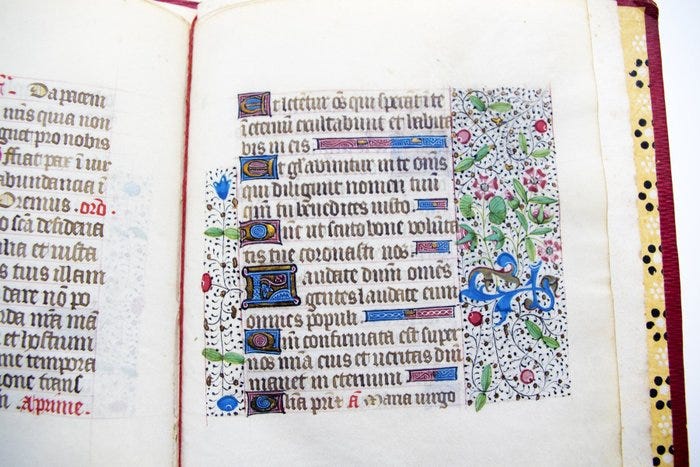 Da pacem
nris quia non
pro nobis
fiat pax i uir
abundancia i
Oremus. oro.
sca desideria
et iusta
s tuis illam
dare no po
nra
et hostium
tempora
n A prime.
Et letetur os qui sperat i te
i eternu exultabunt et habita
bis in eis
Et glabuntur in te oms
qui diligunt nomen tuu
qm tu benedices iusto
Dne ut scuto bone volunta
tis tue coronasti nos.
Laudate dnm omes
gentes laudate eum
omnes populi
Qm confirmata est super
nos mia eius et ueritas dni
manet in eternum
Glia pri A Maria uirgo